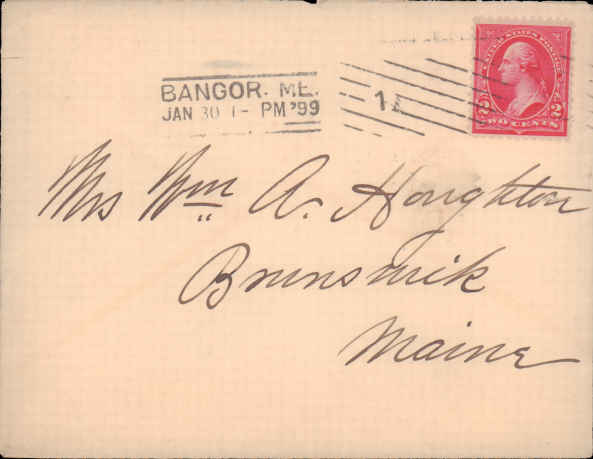 UNITED STATES POSTAGE
BANGOR. ME.
JAN 30 1- PM '99
1
2 2
TWO CENTS
Mrs Wm A. Houghton
Brunswick
Maine